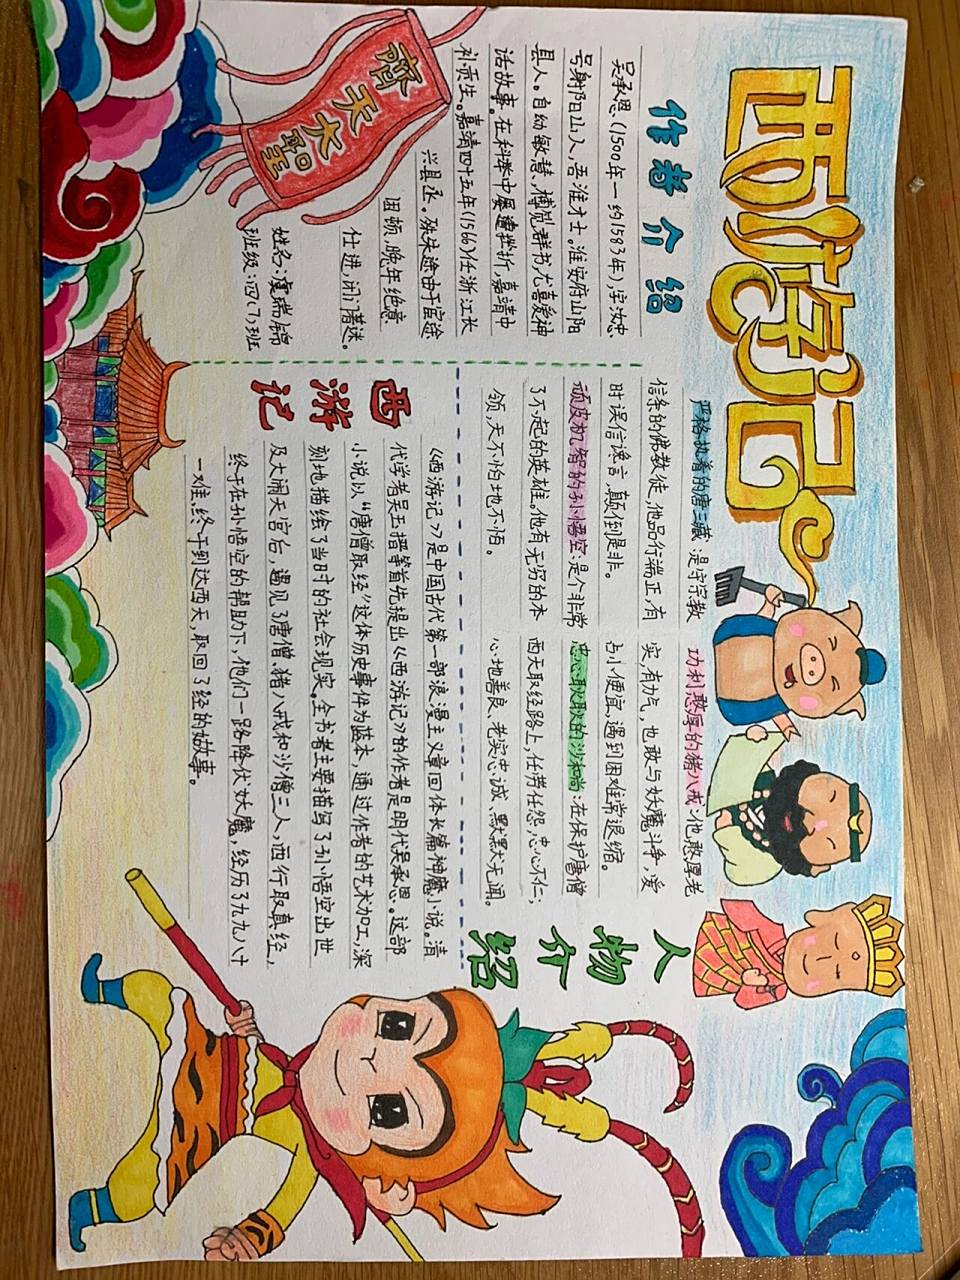 西游记
齊天大聖
作者介绍
吴承恩(1500年一约1583年),字汝忠
号射阳山人,吾淮才士。淮安府山阳
县人。自幼敏慧,博览群书尤喜爱神
话故事。在科举中屡遭挫折,嘉靖中
补贡生。嘉靖四十五年(1566)任浙江长
兴县丞。殊失途由于宦途
困顿,晚年绝意
仕进,闭门著述。
姓名:虞瑞锦
班级:四(7)班
人物介绍
严格执着的唐三藏:是守宗教
信条的佛教徒,他品行端正,有
时误信谗言,颠倒是非。
顽皮机智的孙悟空:是个非常
了不起的英雄。他有无穷的本
领,天不怕地不怕。
功利憨厚的猪八戒:他憨厚老
实,有力气,也敢与妖魔斗争,爱
占小便宜,遇到困难常退缩。
忠心耿耿的沙和尚:在保护唐僧
西天取经路上,任劳任怨,忠心不仁;
心地善良、老实忠诚、默默无闻。
西游记
《西游记》是中国古代第一部浪漫主义章回体长篇神魔小说。清
代学者吴玉搢等首先提出《西游记》的作者是明代吴承恩。这部
小说以“唐僧取经”这体历史事件为蓝本,通过作者的艺术加工,深
刻地描绘了当时的社会现实。全书者主要描写了孙悟空出世
及大闹天宫后,遇见了唐僧、猪八戒和沙僧三人,西行取真经,
终于在孙悟空的帮助下,他们一路降伏妖魔,经历了九九八十
一难,终于到达西天,取回了经的故事。